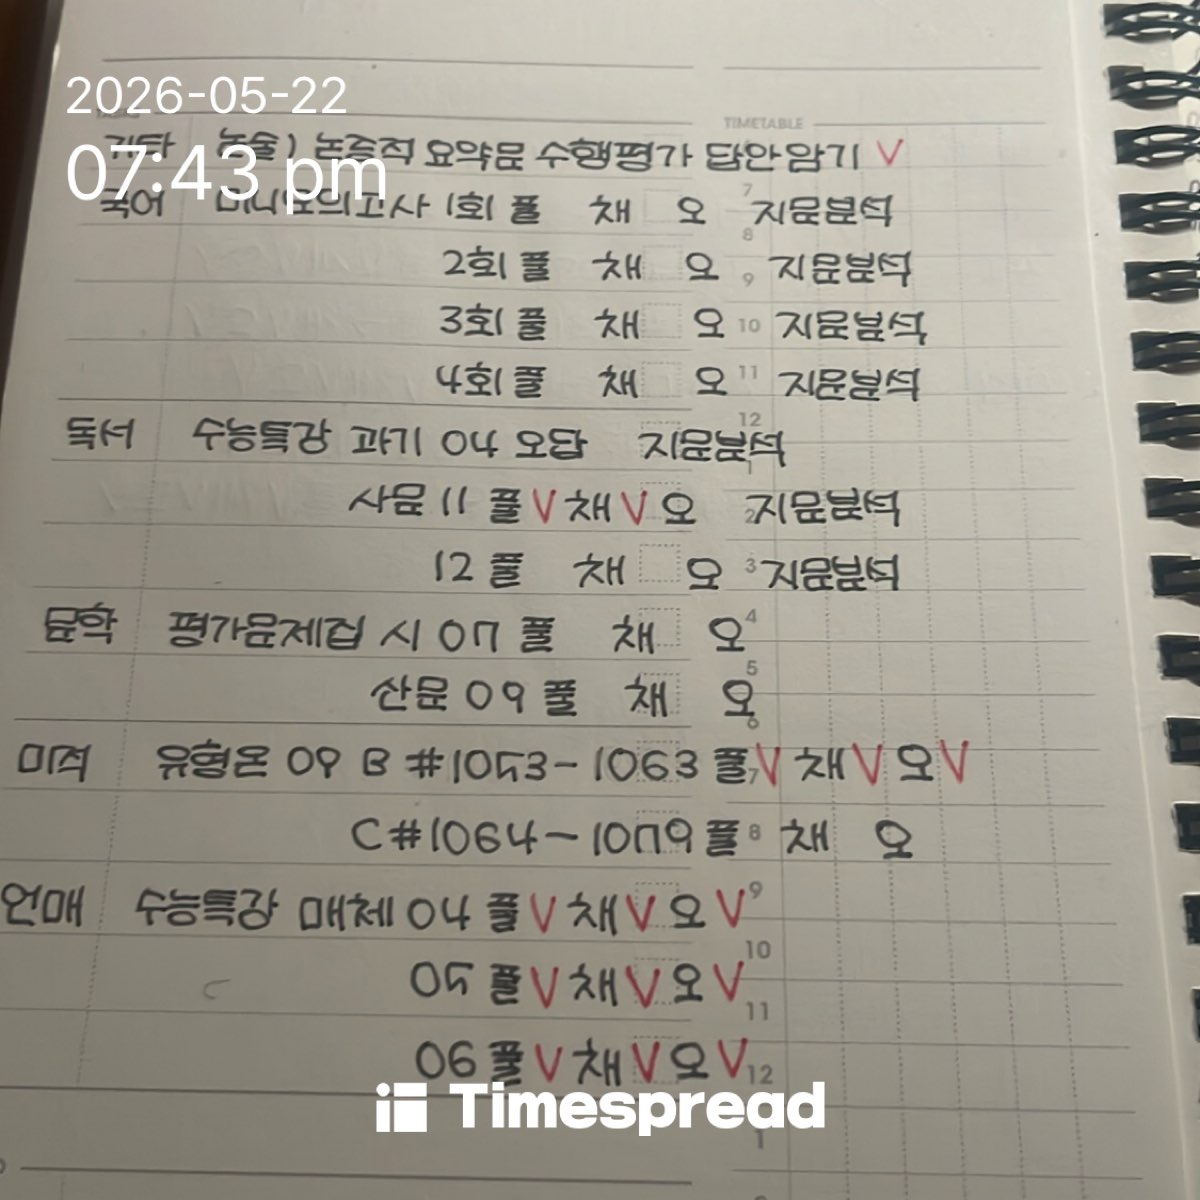 2026-05-22
TIMETABLE
07:43 pm
기타 논술) 논증적 요약문 수행평가 답안암기 V
국어 미니모의고사 1회 풀 채 오 7 지문분석
8
2회 풀 채 오 9 지문분석
3회 풀 채 오 10 지문분석
4회 풀 채 오 11 지문분석
12
독서 수능특강 과기 04 오답 지문분석
1
사문 11 풀V채V오 2 지문분석
12 풀 채 오 3 지문분석
문학 평가문제집 시 07 풀 채 오 4
5
산문 09 풀 채 오 6
미적 유형온 09 B #1053-1063 풀V 7 채V오V
C#1064-1079 풀 8 채 오
언매 수능특강 매체 04 풀V채V오V 9
10
05 풀V채V오V
11
06 풀V채V오V 12
Timespread
1